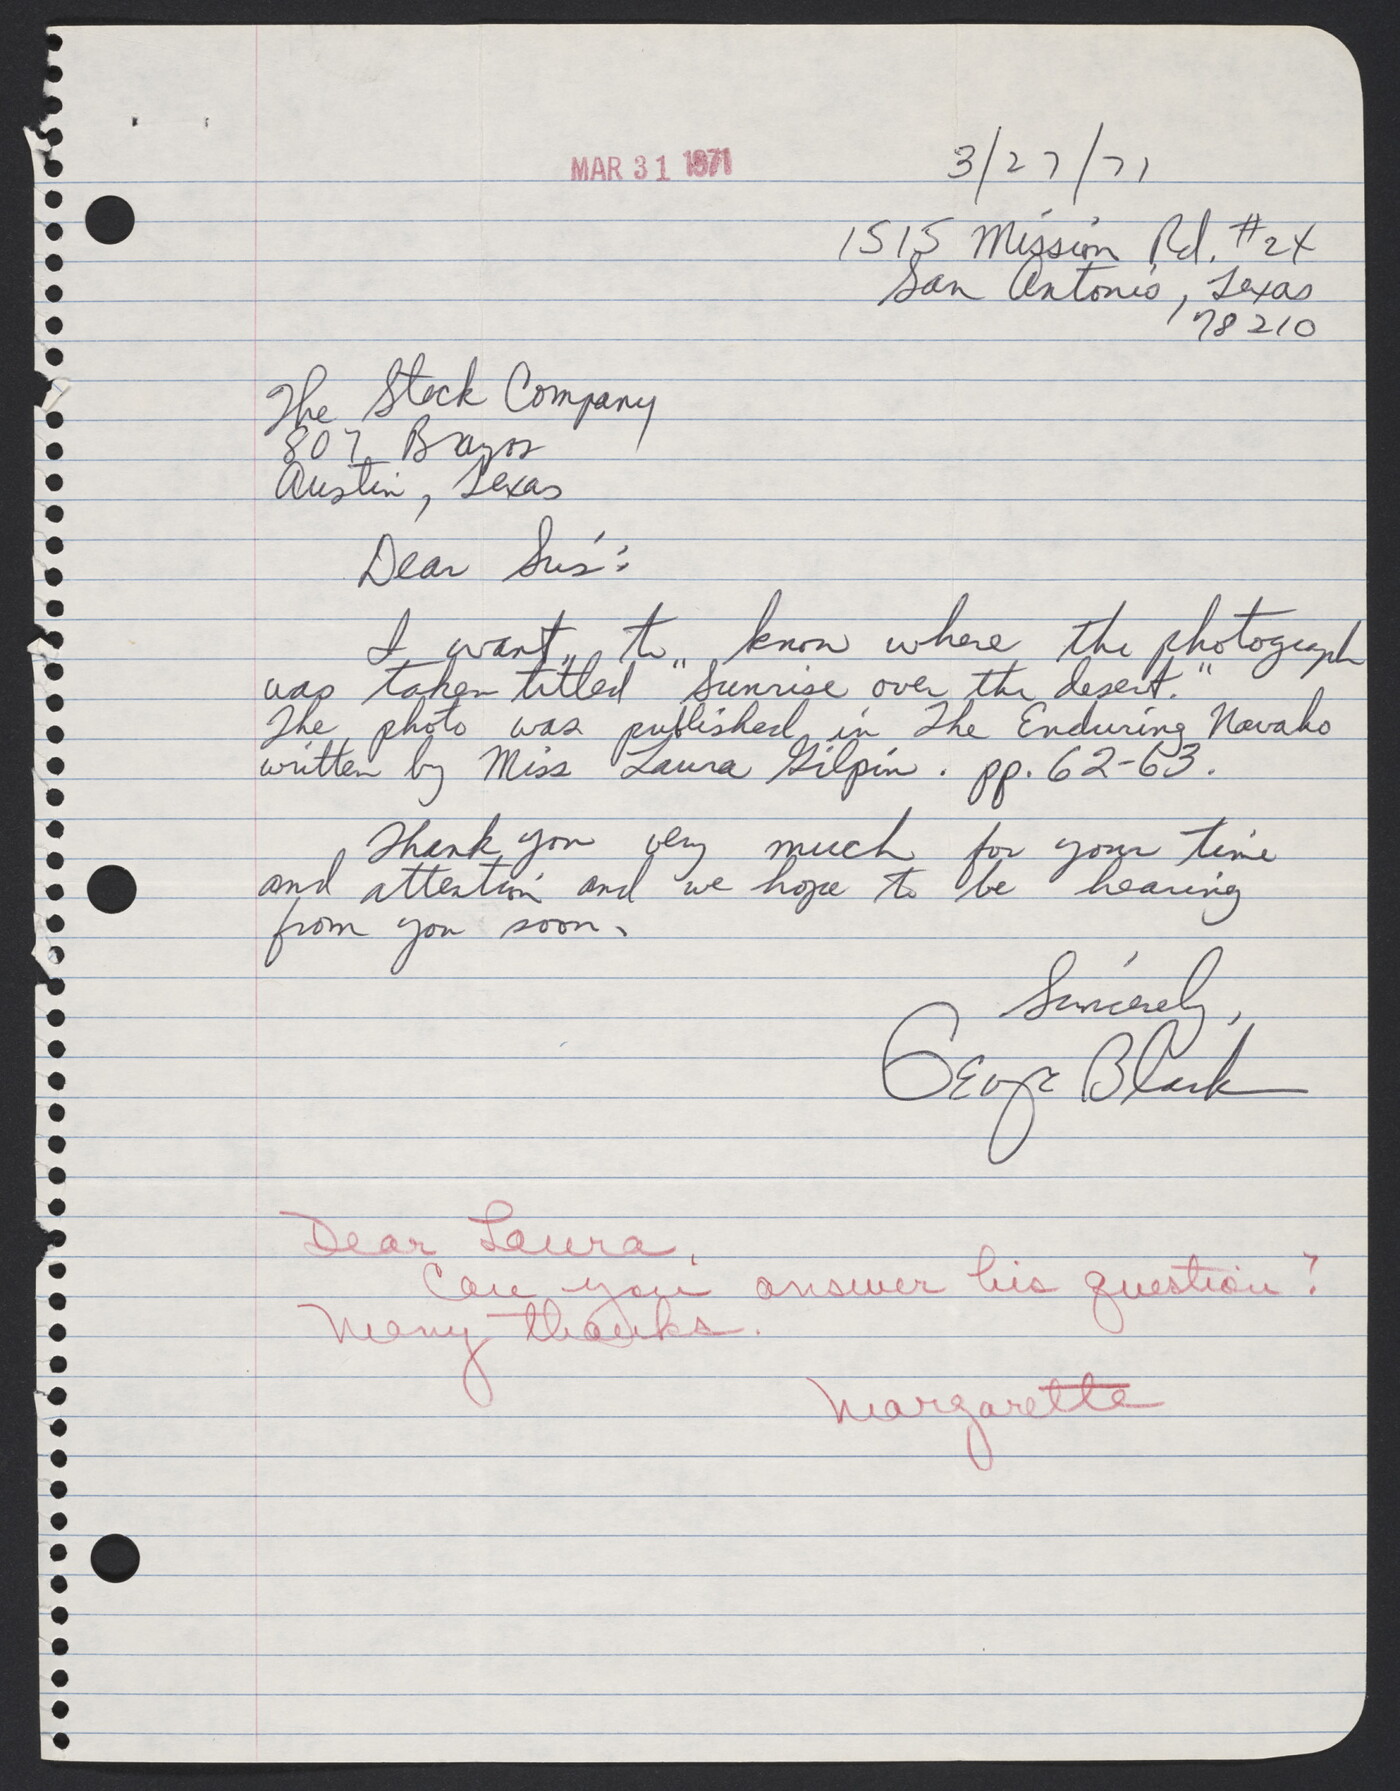 MAR 31 1971
3/27/71
1515 Mission Rd. #24
San Antonio, Texas
78210
The Steck Company
807 Brazos
Austin, Texas
Dear Sirs:
I want to know where the photograph
was taken titled "Sunrise over the desert."
The photo was published in The Enduring Navaho
written by Miss Laura Gilpin. pp. 62-63.
Thank you very much for your time
and attention and we hope to be hearing
from you soon.
Sincerely,
George Clark
Dear Laura,
Can you answer his question?
Many thanks.
Margarette